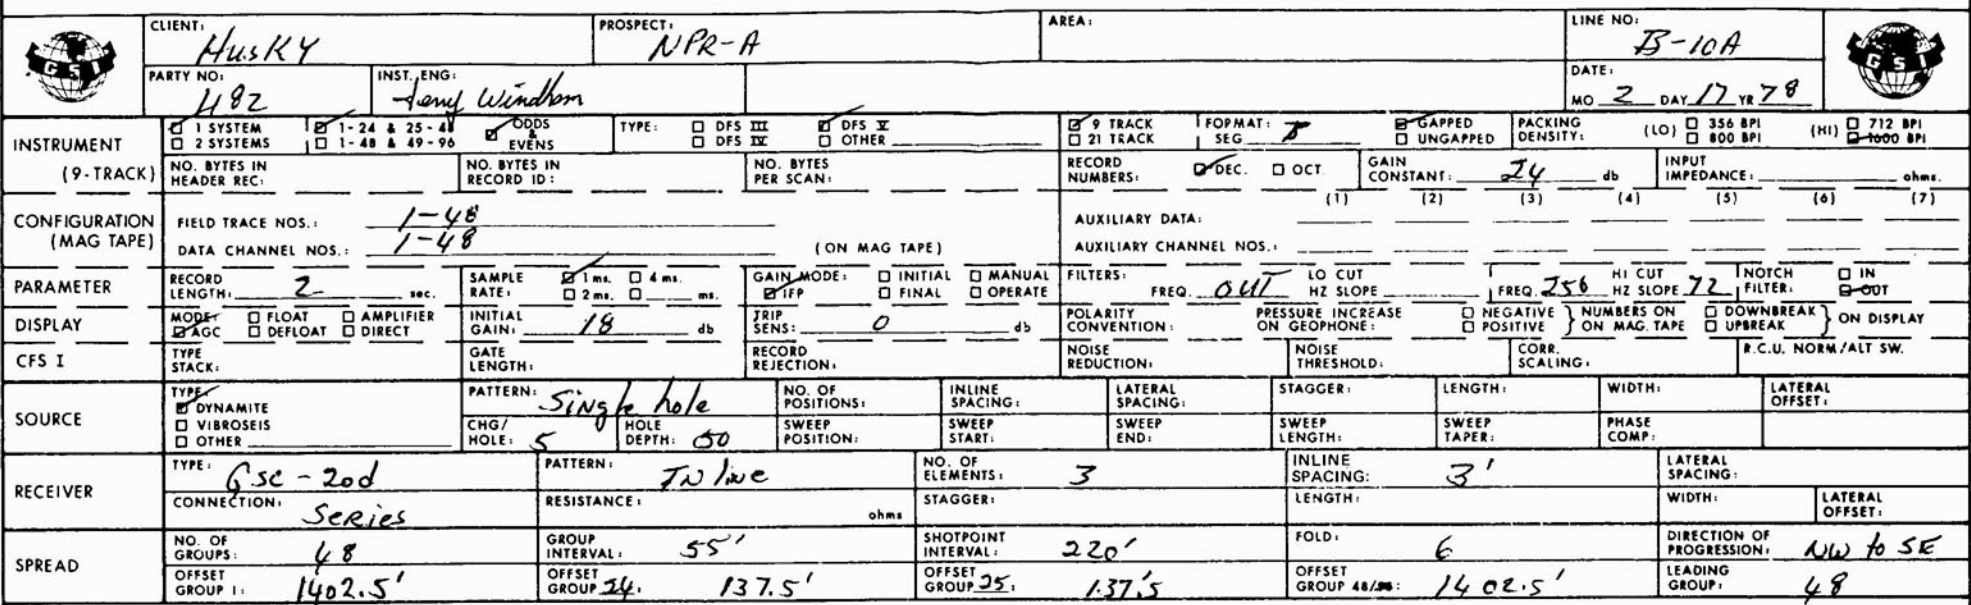 CLIENT: HusKY PROSPECT: NPR-A AREA: LINE NO: B-10A
GSI
PARTY NO: 482 INST. ENG: Windham DATE: MO 2 DAY 17 YR 78
GSI
INSTRUMENT (9-TRACK)
☑ 1 SYSTEM ☑ 1-24 & 25-48 ☑ ODDS & EVENS TYPE: ☐ DFS III ☑ DFS V ☑ 9 TRACK FORMAT: SEG B ☑ GAPPED PACKING DENSITY: (LO) ☐ 356 BPI (HI) ☐ 712 BPI
☐ 2 SYSTEMS ☐ 1-48 & 49-96 ☐ DFS IV ☐ OTHER ☐ 21 TRACK ☐ UNGAPPED ☐ 800 BPI ☑ 1600 BPI
NO. BYTES IN HEADER REC: NO. BYTES IN RECORD ID: NO. BYTES PER SCAN: RECORD NUMBERS: ☑ DEC. ☐ OCT GAIN CONSTANT: 24 db INPUT IMPEDANCE: ohms.
CONFIGURATION (MAG TAPE)
(1) (2) (3) (4) (5) (6) (7)
FIELD TRACE NOS.: 1-48 AUXILIARY DATA:
DATA CHANNEL NOS.: 1-48 (ON MAG TAPE) AUXILIARY CHANNEL NOS.:
PARAMETER
RECORD LENGTH: 2 sec. SAMPLE RATE: ☑ 1 ms. ☐ 4 ms. ☐ 2 ms. ☐ ms. GAIN MODE: ☐ INITIAL ☐ MANUAL ☑ IFP ☐ FINAL ☐ OPERATE FILTERS: FREQ. OUT LO CUT HZ SLOPE FREQ. 256 HI CUT HZ SLOPE 72 NOTCH FILTER: ☐ IN ☑ OUT
DISPLAY
MODE: ☐ FLOAT ☐ AMPLIFIER ☑ AGC ☐ DEFLOAT ☐ DIRECT INITIAL GAIN: 18 db TRIP SENS: 0 db POLARITY CONVENTION: PRESSURE INCREASE ON GEOPHONE: ☐ NEGATIVE ☐ POSITIVE } NUMBERS ON ON MAG. TAPE ☐ DOWNBREAK ☐ UPBREAK } ON DISPLAY
CFS I
TYPE STACK: GATE LENGTH: RECORD REJECTION: NOISE REDUCTION: NOISE THRESHOLD: CORR. SCALING: R.C.U. NORM/ALT SW.
SOURCE
TYPE: ☑ DYNAMITE ☐ VIBROSEIS ☐ OTHER
PATTERN: Single hole NO. OF POSITIONS: INLINE SPACING: LATERAL SPACING: STAGGER: LENGTH: WIDTH: LATERAL OFFSET:
CHG/HOLE: 5 HOLE DEPTH: 50 SWEEP POSITION: SWEEP START: SWEEP END: SWEEP LENGTH: SWEEP TAPER: PHASE COMP:
RECEIVER
TYPE: Gsc-20d PATTERN: IN line NO. OF ELEMENTS: 3 INLINE SPACING: 3' LATERAL SPACING:
CONNECTION: Series RESISTANCE: ohms STAGGER: LENGTH: WIDTH: LATERAL OFFSET:
SPREAD
NO. OF GROUPS: 48 GROUP INTERVAL: 55' SHOTPOINT INTERVAL: 220' FOLD: 6 DIRECTION OF PROGRESSION: NW to SE
OFFSET GROUP 1: 1402.5' OFFSET GROUP 24: 137.5' OFFSET GROUP 25: 137.5 OFFSET GROUP 48/96: 1402.5' LEADING GROUP: 48